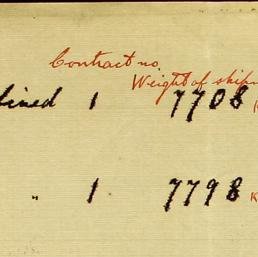 Contract no.
Weight of ship
fined 1 7708 K
" 1 7798 K